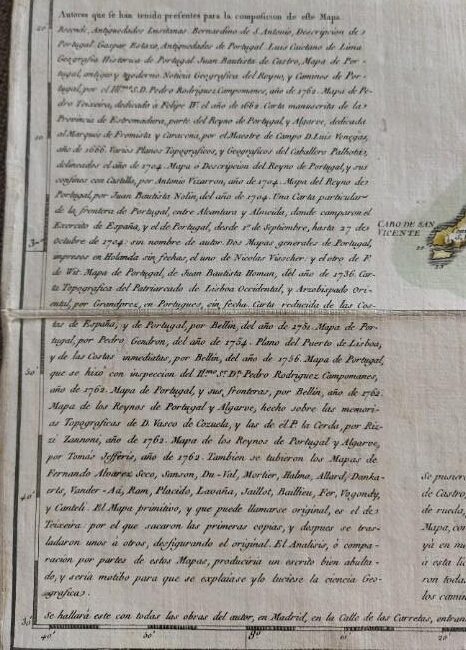 Autores que se han tenido presentes para la composicion de este Mapa
Resende, Antiguedades Lusitanas Bernardino de S. Antonio, Descripcion de
Portugal Gaspar Estazo, Antiguedades de Portugal Luis Caietano de Lima
Geografia Historica de Portugal Juan Bautista de Castro, Mapa de Por-
tugal, antiguo y moderno Noticia Geografica del Reyno, y Caminos de Por-
tugal, por el Illmo. S. D. Pedro Rodriguez Campomanes, año de 1762. Mapa de Pe-
dro Teixeira, dedicado à Felipe IV. el año de 1662. Carta manuscrita de la
Provincia de Estremadura, parte del Reyno de Portugal, y Algarve, dedicada
al Marques de Fromista y Caracena, por el Maestre de Campo D. Luis Venegas,
año de 1666. Varios Planos Topograficos, y Geograficos del Caballero Palhotis,
delineados el año de 1704. Mapa o Descripcion del Reyno de Portugal, y sus
confines con Castilla, por Antonio Vizarron, año de 1704. Mapa del Reyno de
Portugal, por Juan Bautista Nolin, del año de 1704. Una Carta particular
de la frontera de Portugal, entre Alcantara y Almeida, donde camparon el
Exercito de España, y el de Portugal, desde 1º. de Septiembre, hasta 27 de
Octubre de 1704. sin nombre de autor. Dos Mapas generales de Portugal,
impresos en Holanda sin fechas, el uno de Nicolas Visscher. y el otro de F.
de Wit. Mapa de Portugal, de Juan Bautista Homan, del año de 1736. Car-
ta Topografica del Patriarcado de Lisboa Occidental, y Arzobispado Ori-
ental, por Grandprez, en Portugues, sin fecha. Carta reducida de las Cos-
tas de España, y de Portugal, por Bellin, del año de 1751. Mapa de Por-
tugal, por Pedro Gendron, del año de 1754. Plano del Puerto de Lisboa,
y de las Costas inmediatas, por Bellin, del año de 1756. Mapa de Portugal,
que se hizo con inspeccion del Illmo. Sr. Dn. Pedro Rodriguez Campomanes,
año de 1762. Mapa de Portugal, y sus fronteras, por Bellin, año de 1762.
Mapa de los Reynos de Portugal y Algarve, hecho sobre las memori-
as Topograficas de D. Vasco de Cozuela, y las de el P. la Cerda, por Riz-
zi Zannoni, año de 1762. Mapa de los Reynos de Portugal y Algarve,
por Tomás Jefferis, año de 1762. Tambien se tubieron los Mapas de
Fernando Alvarez Seco, Sanson, Du-Val, Mortier, Halma, Allard, Danka-
erts, Vander-Aa, Ram, Placido, Lavaña, Jaillot, Baillieu, Fer, Vogondy,
y Canteli. El Mapa primitivo, y que puede llamarse original, es el de
Teixeira: por el que sacaron las primeras copias, y despues se tras-
ladaron unos à otros, desfigurando el original. El Analisis, ò compa-
racion por partes de estos Mapas, produciria un escrito bien abulta-
do, y seria motibo para que se explaiase y lo luciese la ciencia Geo-
grafica.
Se hallará este con todas las obras del autor, en Madrid, en la Calle de las Carretas, entran
CABO DE SAN
VICENTE
Se pusiero
de Castro,
de rueda,
Mapa, con
yà en nu
à esta lis
ron toda
los camin
50'
40'
30'
40'
30'
90
10'
20'